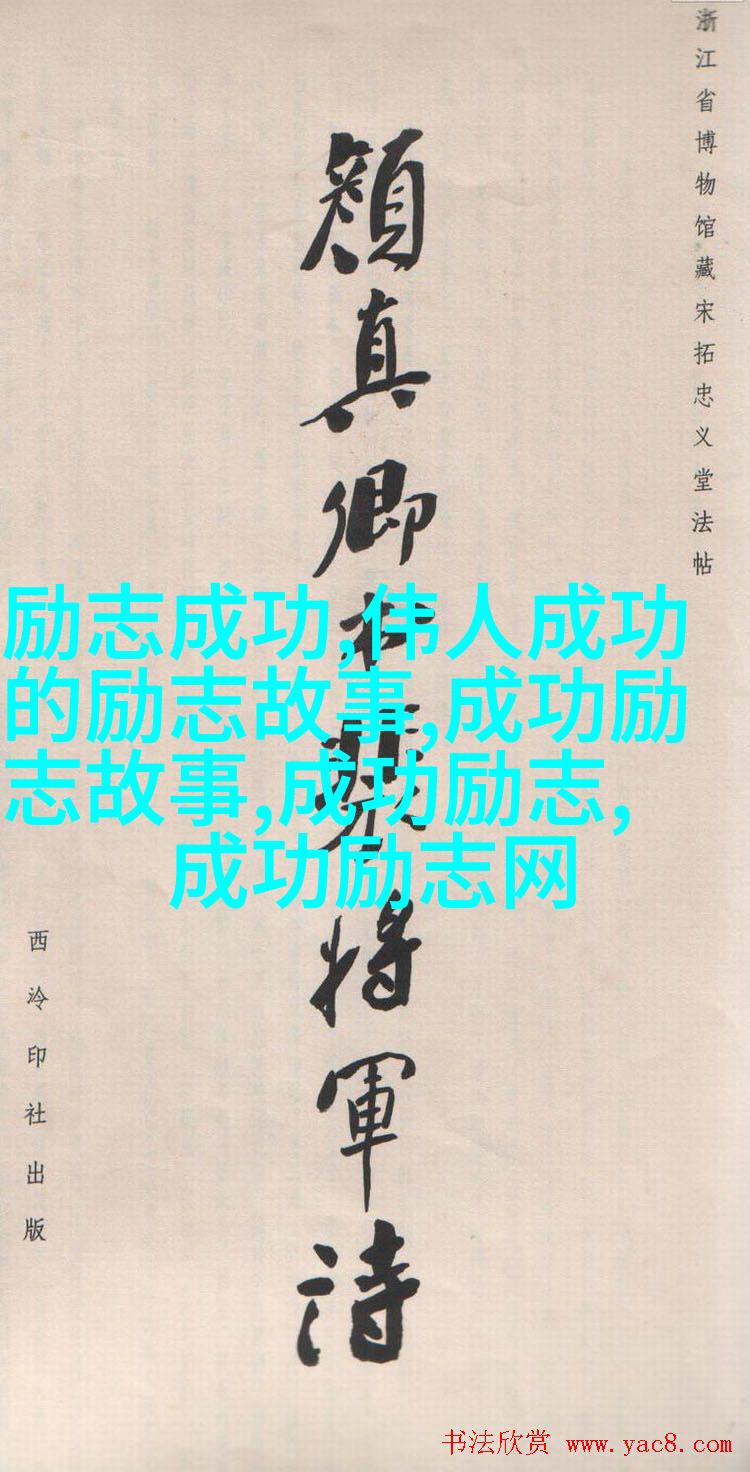 浙江省博物馆藏宋拓忠义堂法帖
顏真卿裴將軍詩
西泠印社出版
励志成功,伟人成功
的励志故事,成功励
志故事,成功励志,
成功励志网
书法欣赏 www.yac8.com